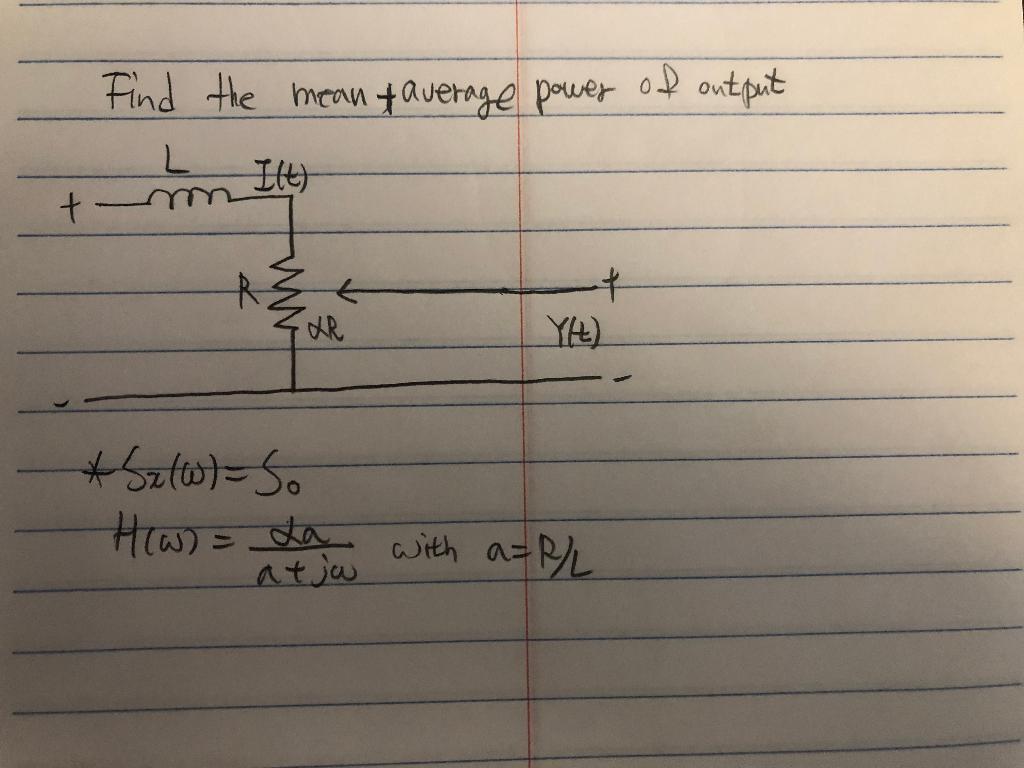 Find the mean + average power of output
L
I(t)
+
R
+
αR
Y(t)
-
-
* Sx(ω) = S₀
H(ω) = αa / a + jω with a = R/L